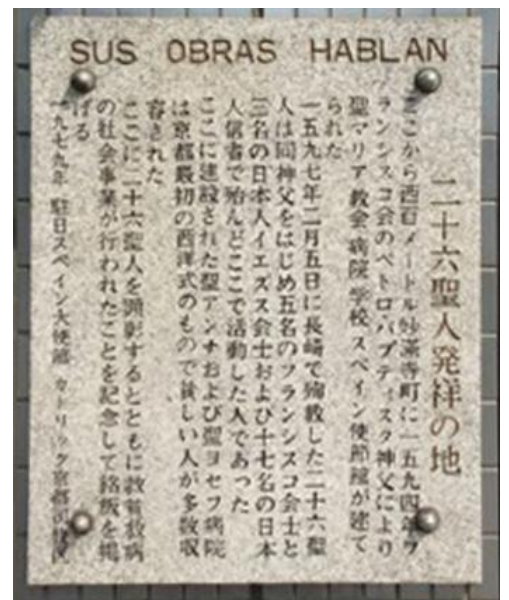 SUS OBRAS HABLAN
二十六聖人発祥の地
ここから西百メートル妙満寺町に一五九四年フ
ランシスコ会のペトロ・バプティスタ神父により
聖マリア教会 病院 学校 スペイン使節館が建て
られた
一五九七年二月五日に長崎で殉教した二十六聖
人は同神父をはじめ五名のフランシスコ会士と
三名の日本人イエズス会士および十七名の日本
人信者で殆んどここで活動した人であった
ここに建設された聖アンナおよび聖ヨセフ病院
は京都最初の西洋式のもので貧しい人が多数収
容された
ここに二十六聖人を顕彰するとともに救貧救病
の社会事業が行われたことを記念して銘板を掲
げる
一九七九年 駐日スペイン大使館 カトリック京都司教区